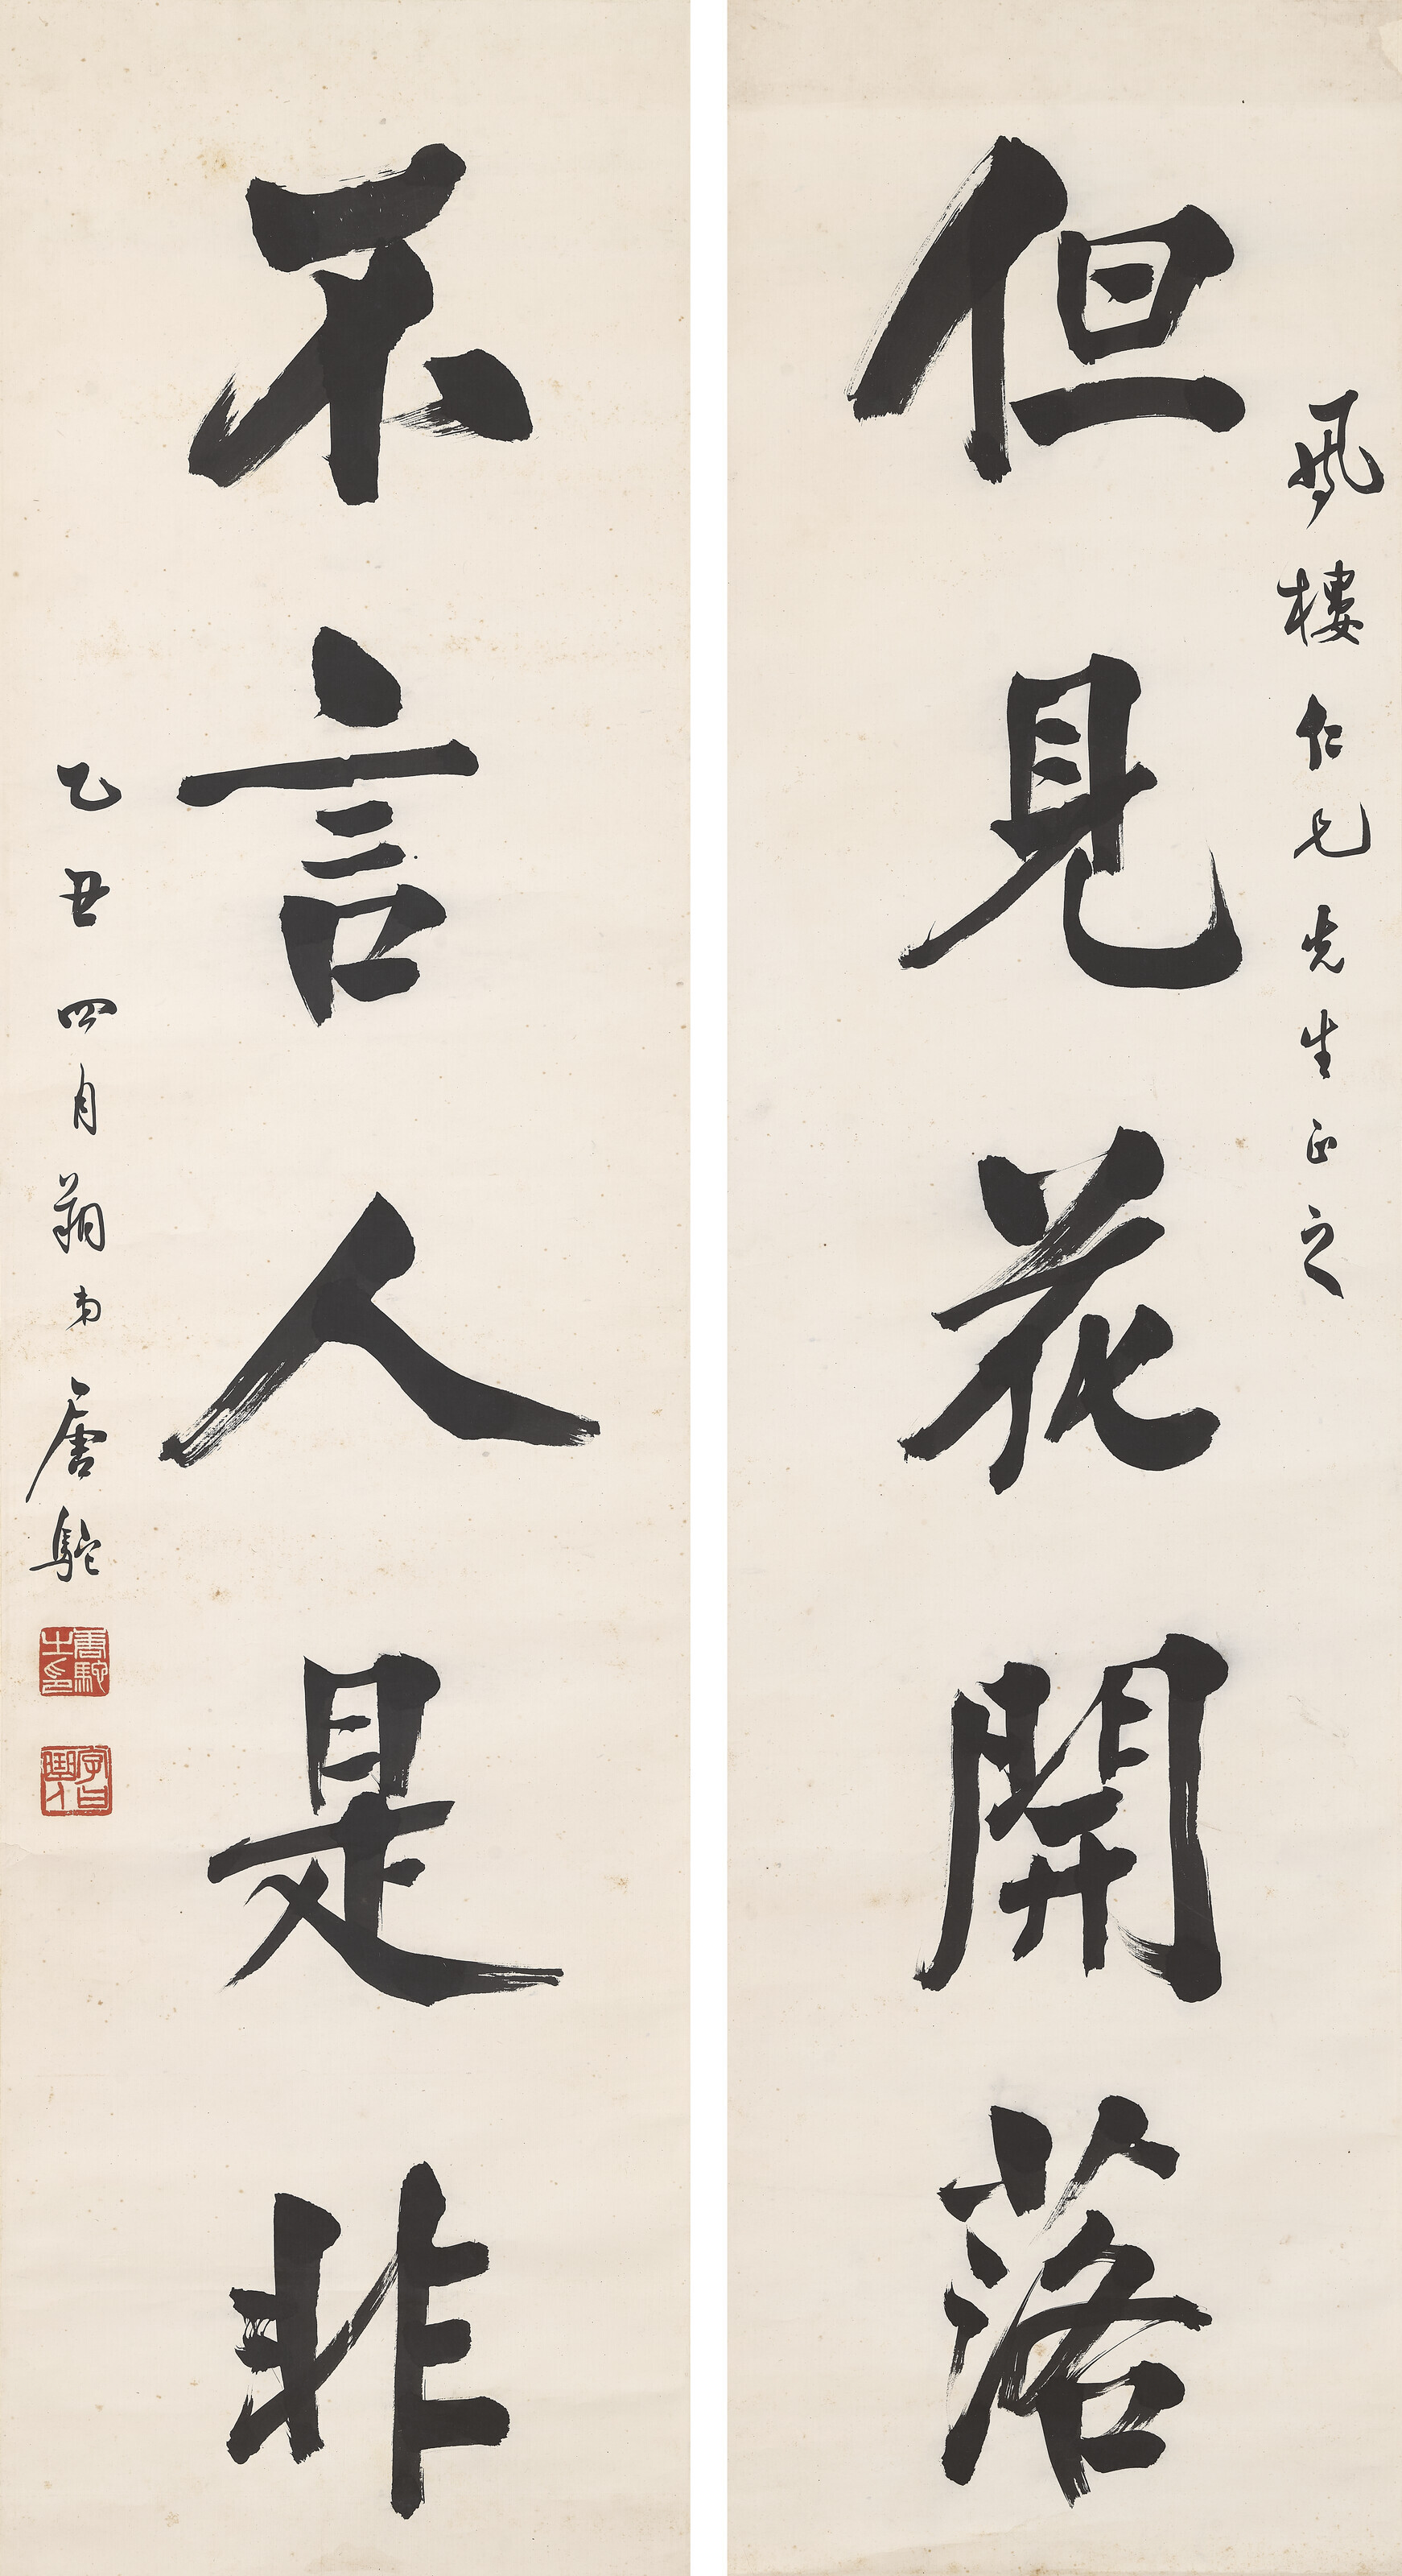 鳳樓仁兄先生正之
但見花開落
不言人是非
乙丑四月朔弟唐駝
唐駝之印
字曰輿人